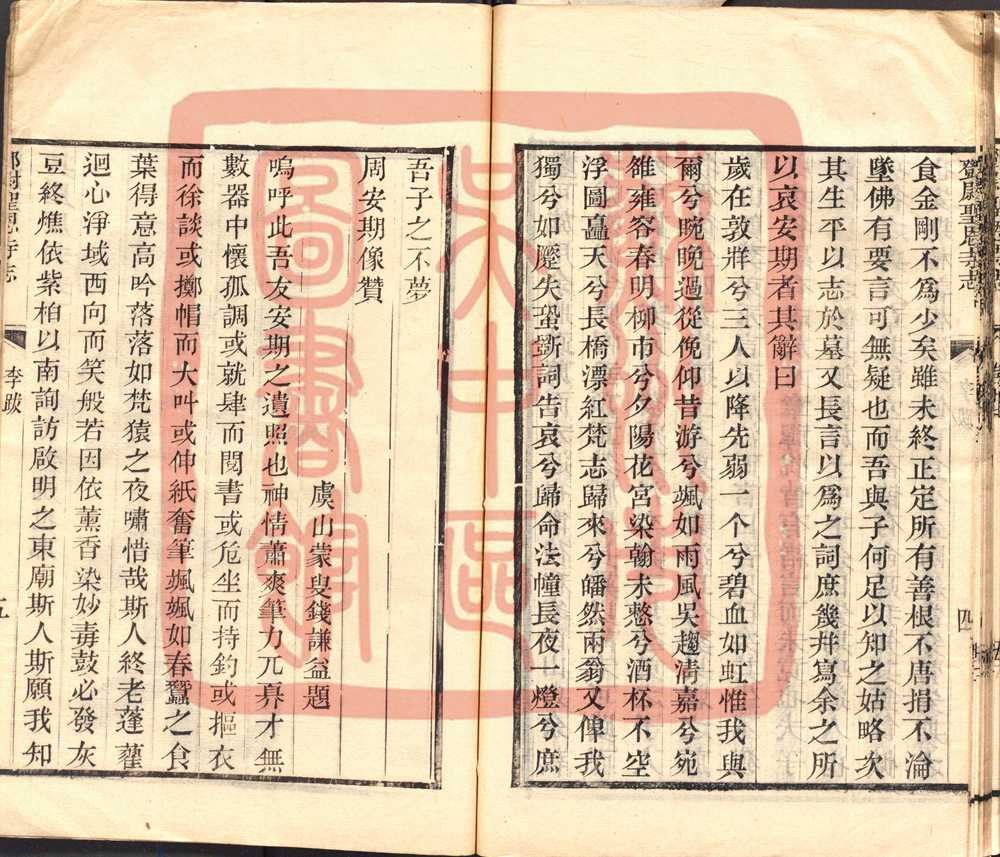 鄧尉聖恩寺志
四
食金剛不爲少矣雖未終正定所有善根不唐捐不淪
墜佛有要言可無疑也而吾與子何足以知之姑略次
其生平以志於墓又長言以爲之詞庶幾幷寫余之所
以哀安期者其辭曰
歲在敦牂兮三人以降先弱一个兮碧血如虹惟我與
爾兮晼晚過從俛仰昔游兮颯如雨風吳趨淸嘉兮宛
雒雍容春明柳市兮夕陽花宮染翰未憖兮酒杯不空
浮圖矗天兮長橋漂紅梵志歸來兮皤然兩翁又俾我
獨兮如蟨失蛩斵詞告哀兮歸命法幢長夜一燈兮庶
吾子之不夢
周安期像贊
虞山蒙叟錢謙益題
嗚呼此吾友安期之遺照也神情蕭爽筆力兀奡才無
數器中懷孤調或就肆而閱書或危坐而持釣或摳衣
而徐談或擲帽而大叫或伸紙奮筆颯颯如春蠶之食
葉得意高吟落落如梵猿之夜嘯惜哉斯人終老蓬藋
迴心淨域西向而笑般若因依薰香染妙毒鼓必發灰
豆終燋依紫柏以南詢訪啟明之東廟斯人斯願我知
李跋
五
圖書館